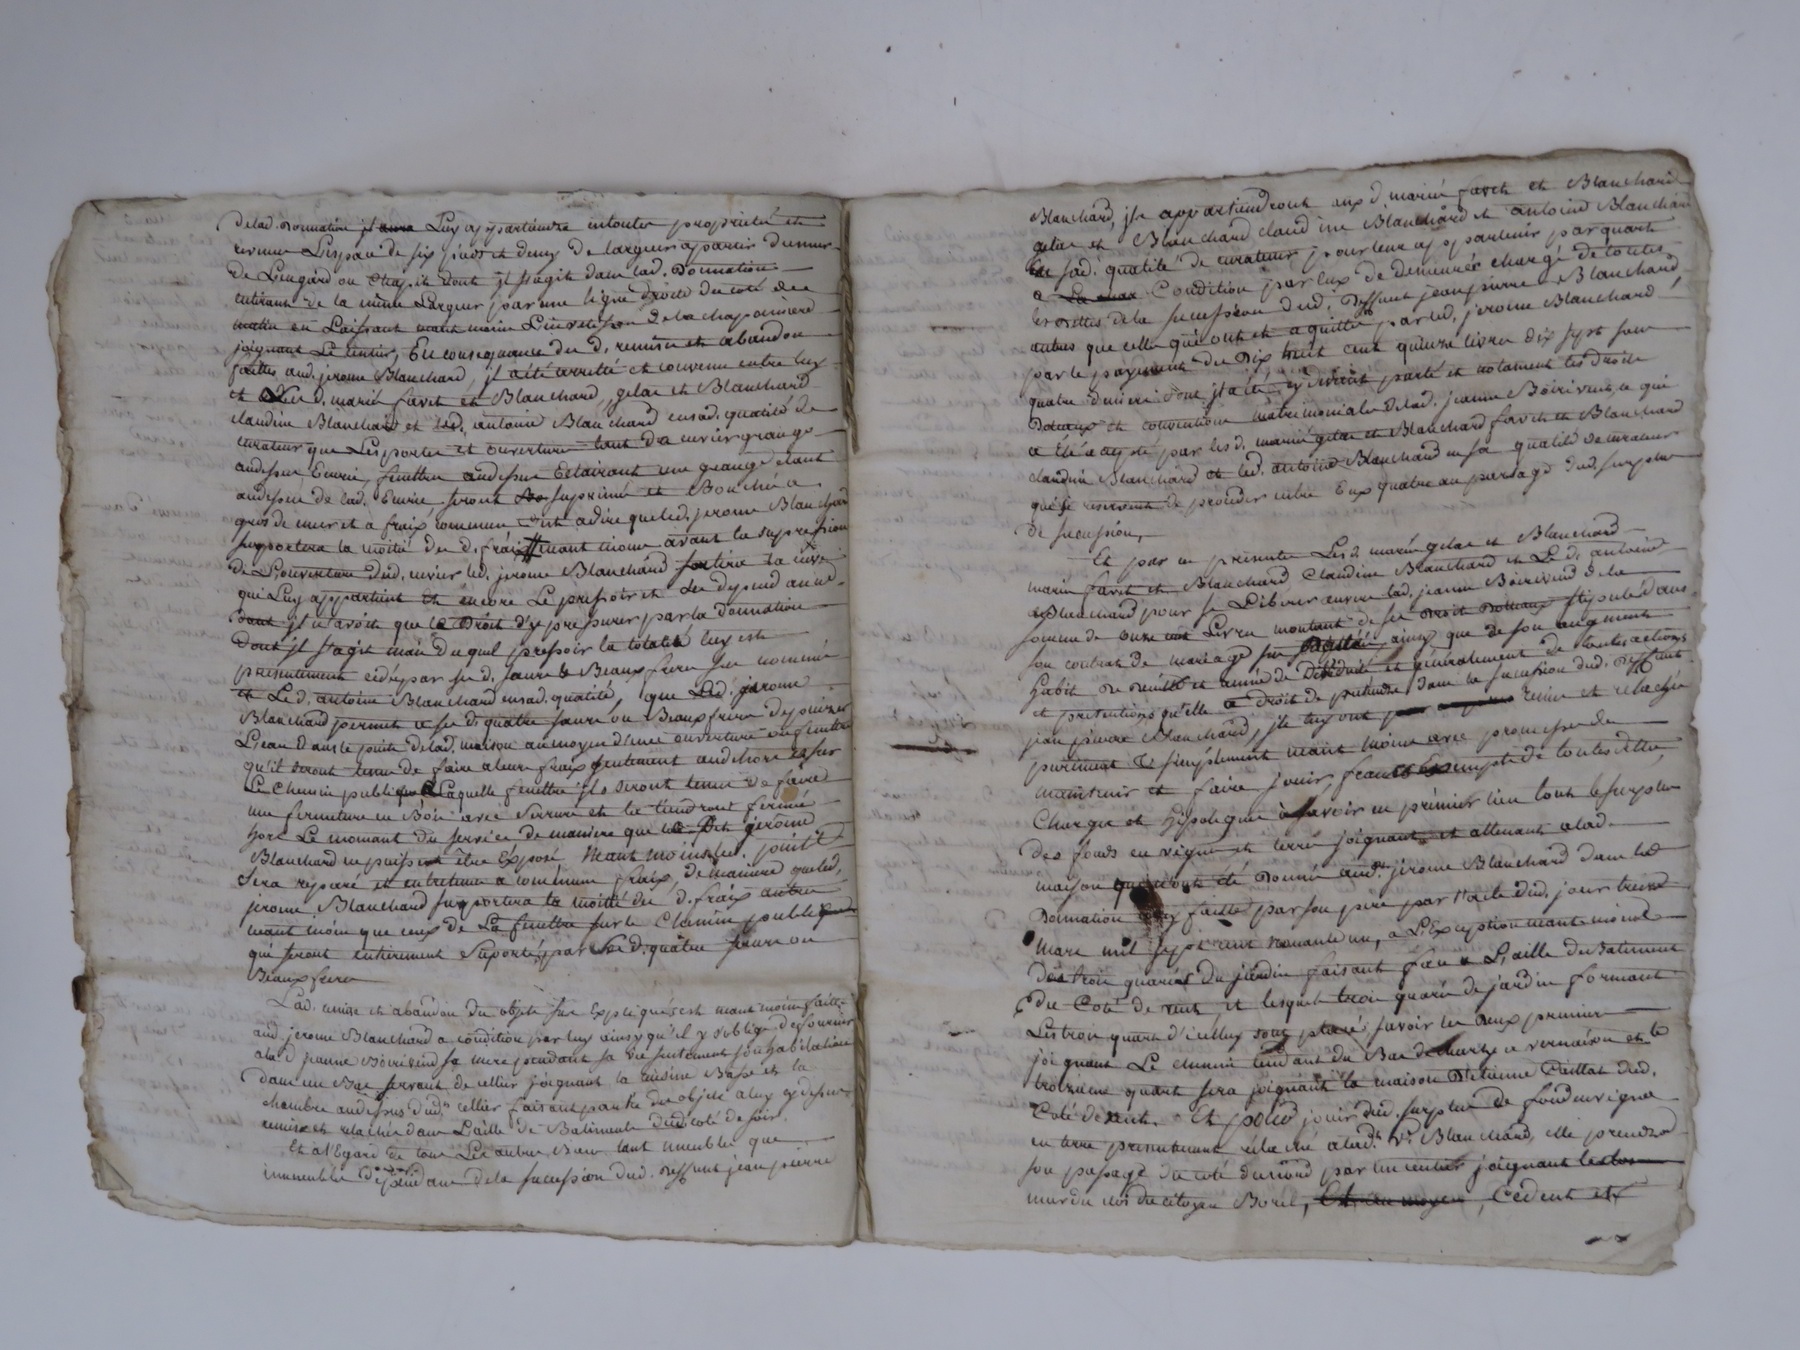 delad. donnation jl aura Luy appartiendra entoutte proprieté et
revenu L'espace de six pieds et demy de largeur apartir du mur
de L'engard ou Chapit dont jl s'agit dans lad. Donnation
entirant de la même Largeur par une ligne droite du coté de
matin en Laissant
joignant Le sentier, En consequance du d. remise et abandon
faittes aud. jerome Blanchard, jl a été arretté et convenu entre luy
et Les d. mariés favet et Blanchard, gelas et Blanchard
claudine Blanchard et led. antoine Blanchard ensad. qualité de
curateur que Les portes et ouverture tant du cuvier grange
audessus Ecurie, fenettre audessus Eclairant une grange étant
audessus de lad. Ecurie, seront suprimé et Bouchée a
gros de mur et a fraix commun c'est adire que led. jerome Blanchard
suportera la moitié de d. fraix neant moins avant la supression
de L'ouverture dud. cuvier led. jerome Blanchard sortira la cuve
qui Luy appartient et encore Le pressoir et
dont jl n'avoit que le droit d'y pressurer par la donnation
dont jl s'agit mais duquel pressoir la totalité luy est
presentement cedé par se d. sœurs & Beaufrere sus nommé
et Led. antoine Blanchard ensad. qualité, que Led. jerome
Blanchard permet a se d. quatre sœurs ou Beauxfreres de puiser
L'eau dans le puits delad. maison au moyen d'une ouverture en fenettre
qu'il seront tenu de faire a leur fraix seulement audehors et sur
Le chemin public laquelle fenettre jls seront tenu de faire
une fermeture en Bois avec serrure et la tiendront fermée
hors Le momant du service de maniere que led. jerome
Blanchard ne puisse être Exposé. Neant moins led. puits
sera reparé et entretenu a commun fraix, de maniere que led.
jerome Blanchard suportera la moitié de d. fraix autre
neant moins que ceux de La fenettre sur le Chemin public
qui seront entierement suporté par se d. quatre sœurs ou
Beauxfrere
Lad. remise et abandon du objets sus Expliqués est neant moins faitte
aud. jerome Blanchard a condition par luy ainsy qu'il s'y oblige de fournir
alad. jeanne Boirivend sa mere pendant sa vie seulement son habitation
dans un Bas servant de cellier joignant la cuisine Basse et la
chambre audessus dud. cellier faisant partie des objets a luy cydessus
remis et relachée dans L'aille de Batiments dud. coté de soir.
Et a l'Egard de tous Les autres Biens tant meubles que
immeubles dépendant dela succession dud. deffunt jean pierre
Blanchard, jls appartiendront aux d. mariés favet et Blanchard
gelas et Blanchard claudine Blanchard et antoine Blanchard
en sad. qualité de curateur pour leur appartenir par quart
a Condition par eux de demeurer chargé de toutes
les dettes de la succession dud. Deffunt jean pierre Blanchard
autres que celles qui ont été aquittés par led. jerome Blanchard
par le payement de Dix huit cent quinze livres dix sept sous
quatre deniers dont jl a été cy devant parlé et notament les droits
Dotaux et conventions matrimoniales delad. jeanne Boirivend, ce qui
a été accepté par les d. mariés gelas et Blanchard favet et Blanchard
claudine Blanchard et led. antoine Blanchard en sa qualité de curateur
qui se reservent de proceder entre Eux quatre au partage dud. surplus
de succession,
Et par ces presentes Les d. mariés gelas et Blanchard
mariés favet et Blanchard Claudine Blanchard et Le d. antoine
Blanchard pour se Liberer envers lad. jeanne Boirivend de la
somme de onze cent Livres montant de ses droits Dotaux stipulé dans
son contrat de mariage ainsy que de son augment
habit de deuil et année de viduité et généralement de toutes actions
et pretentions qu'elle a droit de pretendre dans la succession dud. Deffunt
jean pierre Blanchard, jls luy ont remis et relaché
purement & simplement neant moins avec promesse de
maintenir et faire jouir, franc & Exempte de toutes dettes,
Charges et hipoteques a savoir en premier lieu tout le surplus
des fonds en vigne et terre joignant et attenant alad.
maison qui ont été Donné aud. jerome Blanchard dans la
Donnation a luy faitte par son pere par l'acte dud. jour treize
mars mil sept cent nonante un, a L'Exception neant moins
des trois quarrés du jardin faisant face a L'aille du Batiment
du Coté de vent, et lesquels trois quarrés de jardin formant
Les trois quart d'icelluy sont placé savoir les deux premiers
joignant Le chemin tendant du Bas de Charly a vernaison et le
troizieme quart sera joignant la maison D'Etienne Caillat dud.
Coté de vent. Et pour jouir dud. surplus de fond en vigne
en terre presentement relaché alad. Ve. Blanchard, elle prendra
son passage du coté du nord par un sentier joignant le clos
mur du clos du citoyen Borel, Et au moyen, Cedent et